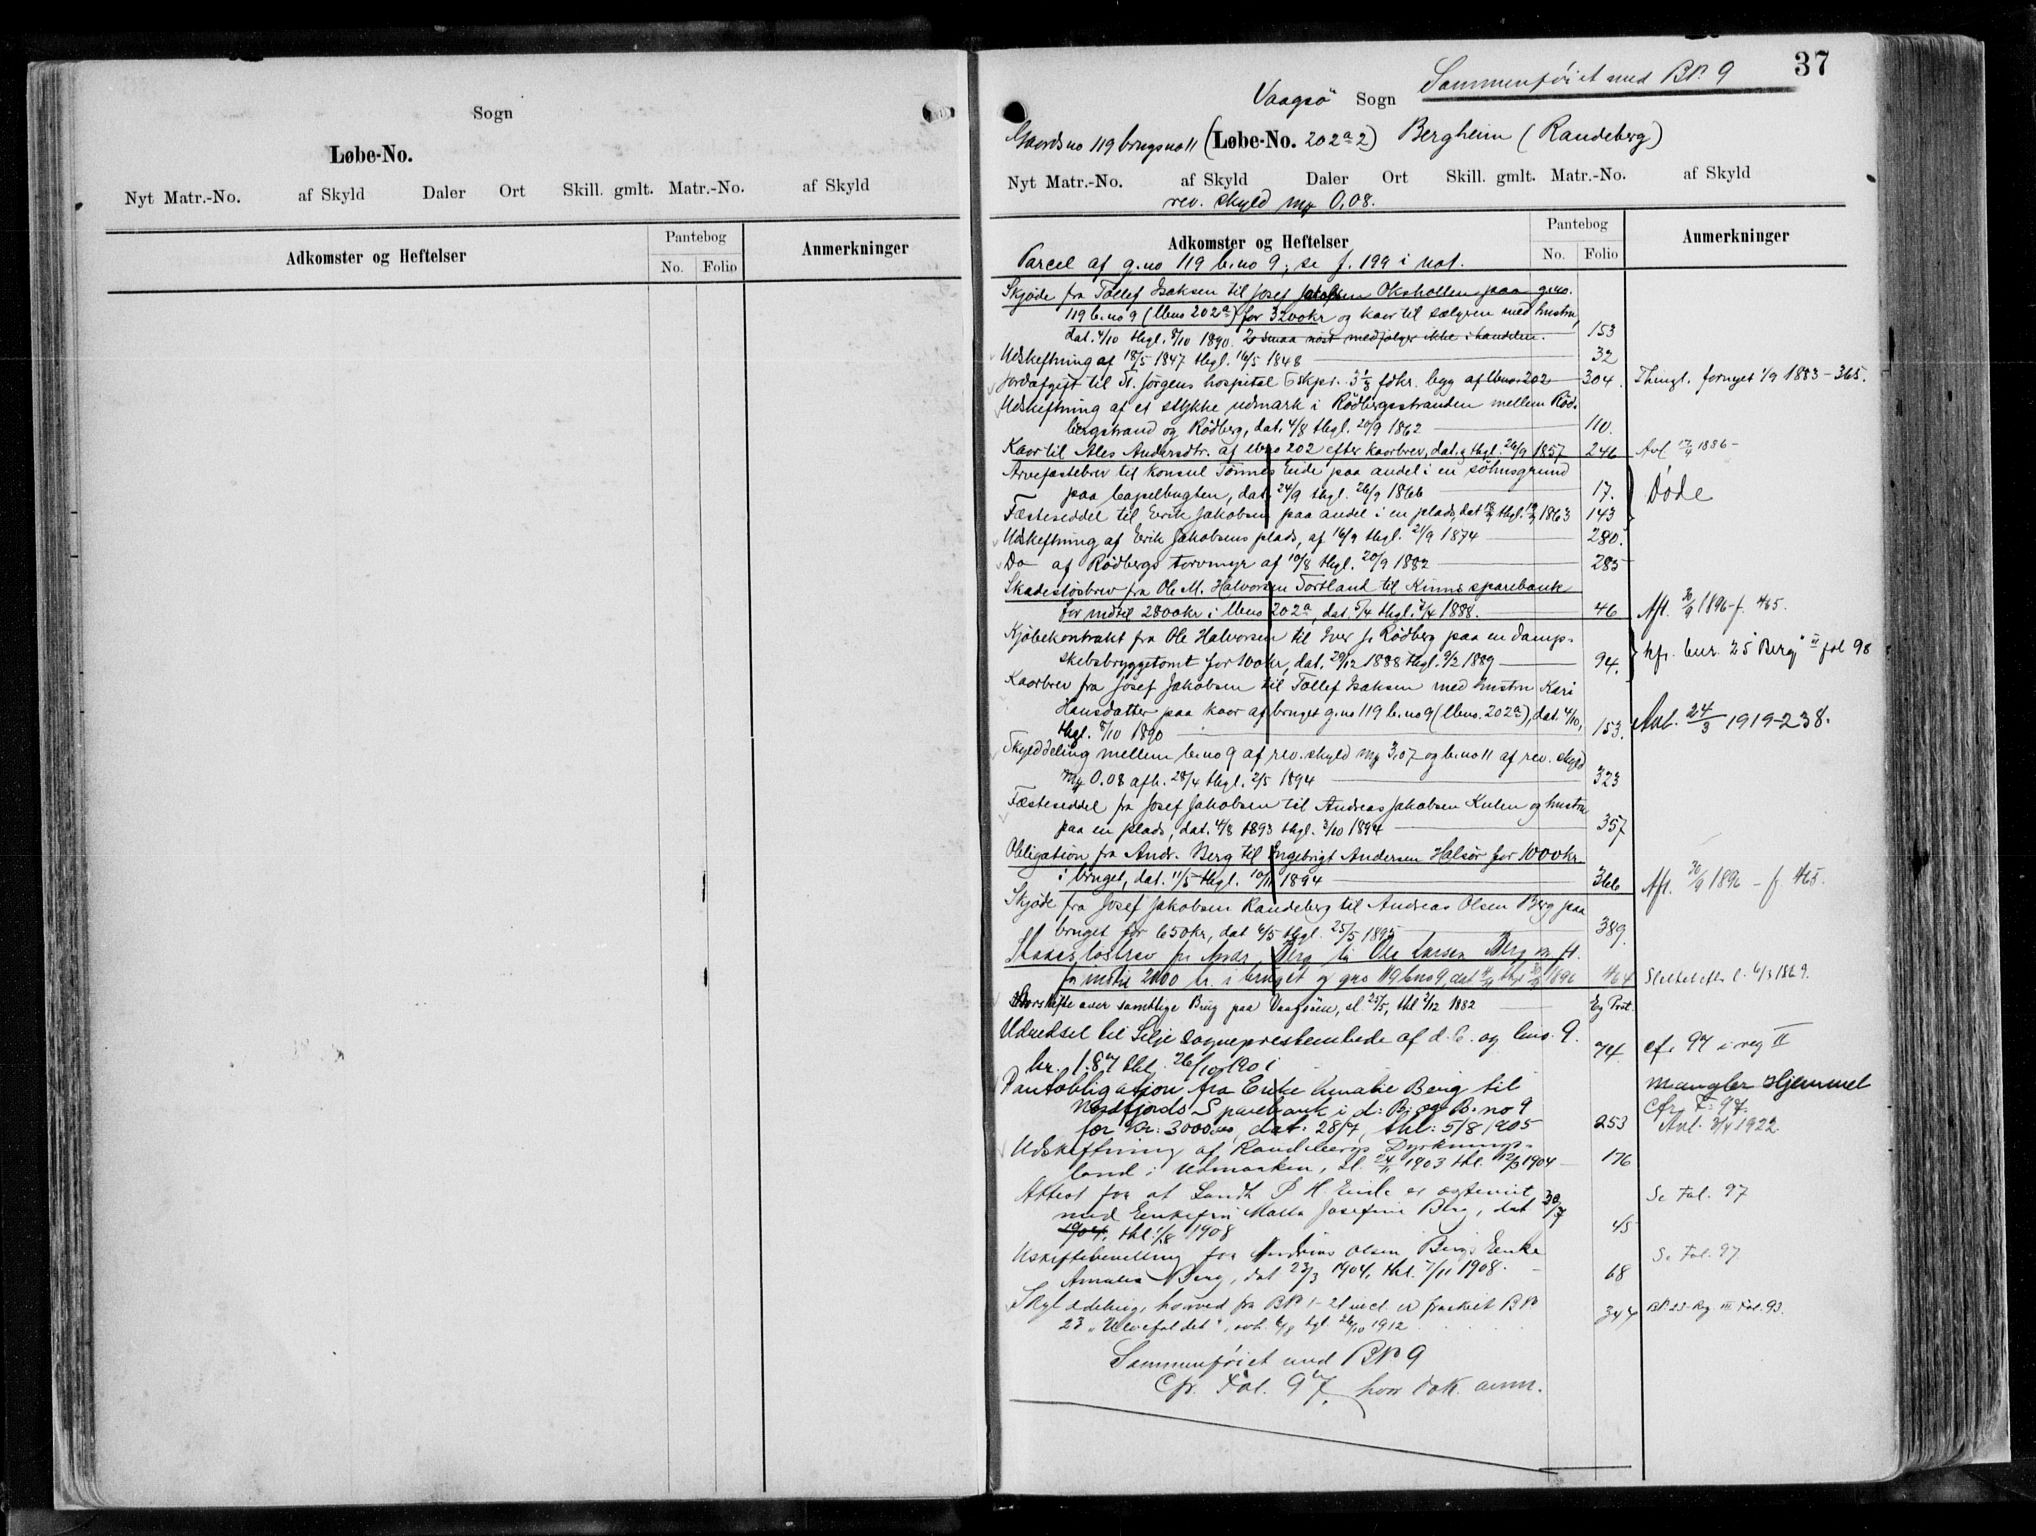 Sogn
Løbe-No.
Nyt Matr.-No. af Skyld Daler Ort Skill. gmlt. Matr.-No. af Skyld
Adkomster og Heftelser
Pantebog
No. Folio
Anmerkninger
37
Sammenføiet med BN 9
Vaagsö Sogn
Gaardsno 119 brugsno 11 (Løbe-No. 202ª2) Bergheim (Randeberg)
Nyt Matr.-No. af Skyld Daler Ort Skill. gmlt. Matr.-No. af Skyld
rev. skyld mk 0,08.
Adkomster og Heftelser
Pantebog
No. Folio
Anmerkninger
Parcel af g.no 119 b.no 9; se f. 199 i not.
Skjøde fra Tollef Isaksen til Josef Jakobsen Okshollen paa g.no.
119 b.no 9 (lbno 202ª) for 3200kr og kaar til sælgren med hustru,
dat. 4/10 thgl. 8/10 1890. 2 smaa nöst medfølger ikke i handelen. 153
Udskiftning af 18/5 1847 thgl. 16/5 1848 32
Jordafgift til St. Jörgens hospital 6 skpr. 3 1/3 fdkr. byg af lbno 202 304. Thingl. fornyet 1/9 1883-365.
Udskiftning af et stykke udmark i Rödbergsstranden mellem Röd-
bergstrand og Rödberg, dat. 4/8 thgl. 20/9 1862 110.
Kaar til Ales Andersdtr. af lbno 202 efter kaarbrev, dat. & thgl. 26/9 1857 246 Avl 1886-
Arvefæstebrev til konsul Tönnes Ende paa andel i en söhusgrund
paa Capelbugten, dat. 24/9 thgl. 26/9 1866 17. Døde
Fæsteseddel til Erik Jakobsen paa andel i en plads, dat thgl. 1863 143
Udskiftning af Erik Jakobsens plads, af 16/9 thgl. 21/9 1874 280.
Do af Rødbergs torvmyr af 10/8 thgl. 20/9 1882 285
Skadesløsbrev fra Ole M. Halvorsen Torsland til Kinns sparebank
for indtil 2800kr i lbno 202ª, dat. 5/4 thgl. 7/4 1888. 46 Afl. 30/9 1896-f. 465.
Kjöbekontrakt fra Ole Halvorsen til Iver J. Rödberg paa en damp-
skibsbryggetomt for 100kr, dat. 29/12 1888 thgl. 9/2 1889 94. hfr. bnr. 25 "Berg" III fol 98
Kaarbrev fra Josef Jakobsen til Tollef Isaksen med hustru Kari
Hansdatter paa kaar af bruget g.no 119 b.no 9 (lbno. 202ª), dat. 4/10,
thgl. 8/10 1890 153. Avl. 24/3 1919-238.
Skylddeling mellem b.no 9 af rev. skyld mk 3,07 og b.no 11 af rev. skyld
mk 0.08 afh. 28/4 thgl. 2/5 1894 323
Fæsteseddel fra Josef Jakobsen til Andreas Jakobsen Kulen og hustru
paa en plads, dat. 4/8 1893 thgl. 3/10 1894 357
Obligation fra Andr. Berg til Engebrigt Andersen Halsör for 1000kr.
i bruget, dat. 11/5 thgl. 10/11 1894 366 Afl. 30/9 1896 - f. 465.
Skjøde fra Josef Jakobsen Randeberg til Andreas Olsen Berg paa
bruget for 650kr, dat 6/5 thgl. 25/5 1895 389.
Skadesløsbrev fra Andr. Berg til Ole Larsen Berg
for indtil 2000 kr. i bruget og gno 119 bno 9, dat thgl 1896 464 Slettet efter l. 6/3 1869.
Storskifte over samtlige Brug paa Vaagsöen, sl. 25/5, thl 2/12 1882 Eg Prot.
Udredsel til Selje sogneprestembede af d. b. og bno. 9.
kr. 1.87 thl. 26/10 1901 74 cfr 97 i reg II
Pantobligation fra Enke Amalie Berg til
Nordfjords Sparebank i d: B. og B. no 9
for kr: 3000,00, dat: 28/7, thl: 5/8 1905 253 mangler Hjemmel
cfr. F. 97.
Avl. 3/4 1922
Udskiftning af Randebergs Dyrknings-
land i Udmarken, sl. 24/11 1903 thl. 12/3 1904 176
Attest for at Landh. P. H. Ende er ægteviet
med Enkefru Marta Josefine Berg, dat 30/7
1904, thl: 1/8 1908 45 Se Fol. 97
Uskiftebevilling for Andreas Olsen Bergs Enke
Amalia Berg, dat 23/3 1904, thl. 7/11 1908. 68 Se Fol. 97
Skylddeling, hvorved fra BN 1-21 incl. er fraskilt BN
23 "Ulvefaldet", avh. 6/8 tgl. 26/10 1912 344 BN 23-Reg III Fol. 93.
Sammenføiet med BN 9
Cfr. Fol. 97, hvor dok. anm.